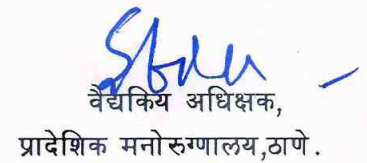 वैद्यकिय अधिक्षक,
प्रादेशिक मनोरुग्णालय,ठाणे.